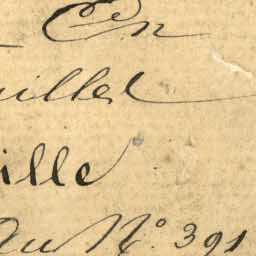 En
uillet
ille
au N.° 391